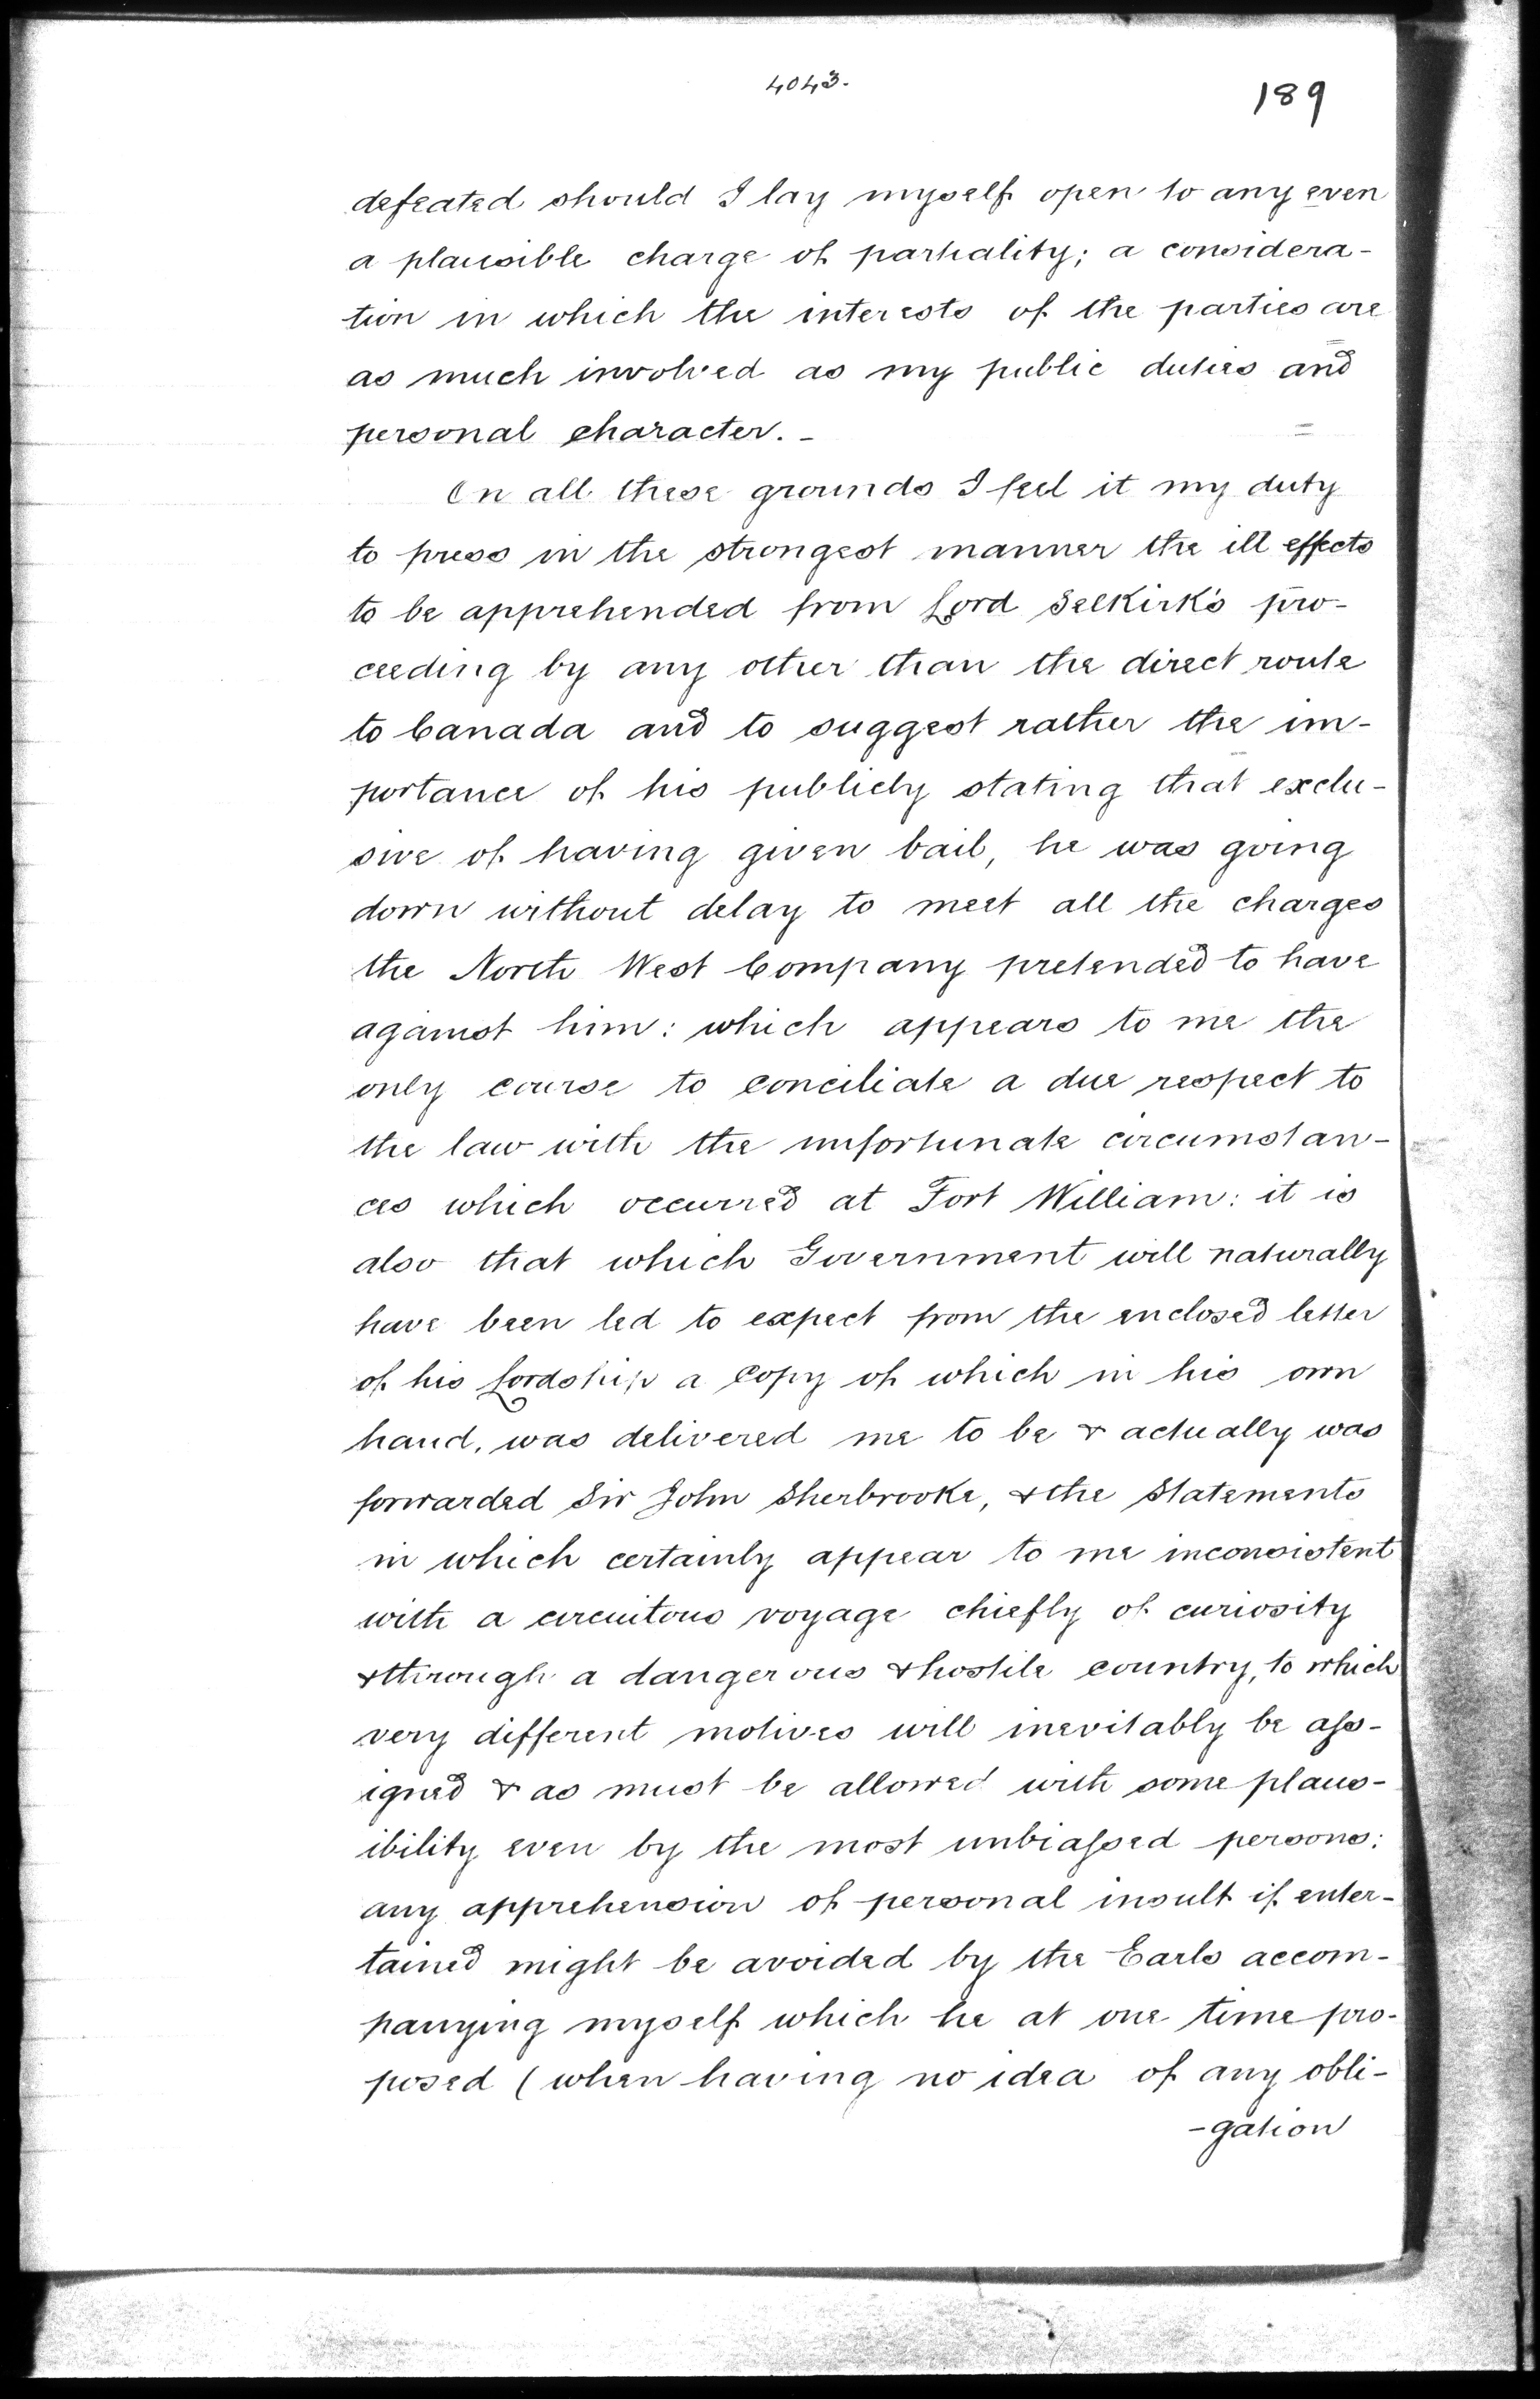 4043.
189
defeated should I lay myself open to any even
a plausible charge of partiality; a considera-
tion in which the interests of the parties are
as much involved as my public duties and
personal character. -
On all these grounds I feel it my duty
to press in the strongest manner the ill effects
to be apprehended from Lord Selkirk's pro-
ceeding by any other than the direct route
to Canada and to suggest rather the im-
portance of his publicly stating that exclu-
sive of having given bail, he was going
down without delay to meet all the charges
the North West Company pretended to have
against him: which appears to me the
only course to conciliate a due respect to
the law with the unfortunate circumstan-
ces which occurred at Fort William: it is
also that which Government will naturally
have been led to expect from the enclosed letter
of his Lordship a copy of which in his own
hand, was delivered me to be & actually was
forwarded Sir John Sherbrooke, & the Statements
in which certainly appear to me inconsistent
with a circuitous voyage chiefly of curiosity
& through a dangerous & hostile country, to which
very different motives will inevitably be ass-
igned & as must be allowed with some plaus-
ibility even by the most unbiassed persons:
any apprehension of personal insult if enter-
tained might be avoided by the Earls accom-
panying myself which he at one time pro-
posed (when having no idea of any obli-
-gation